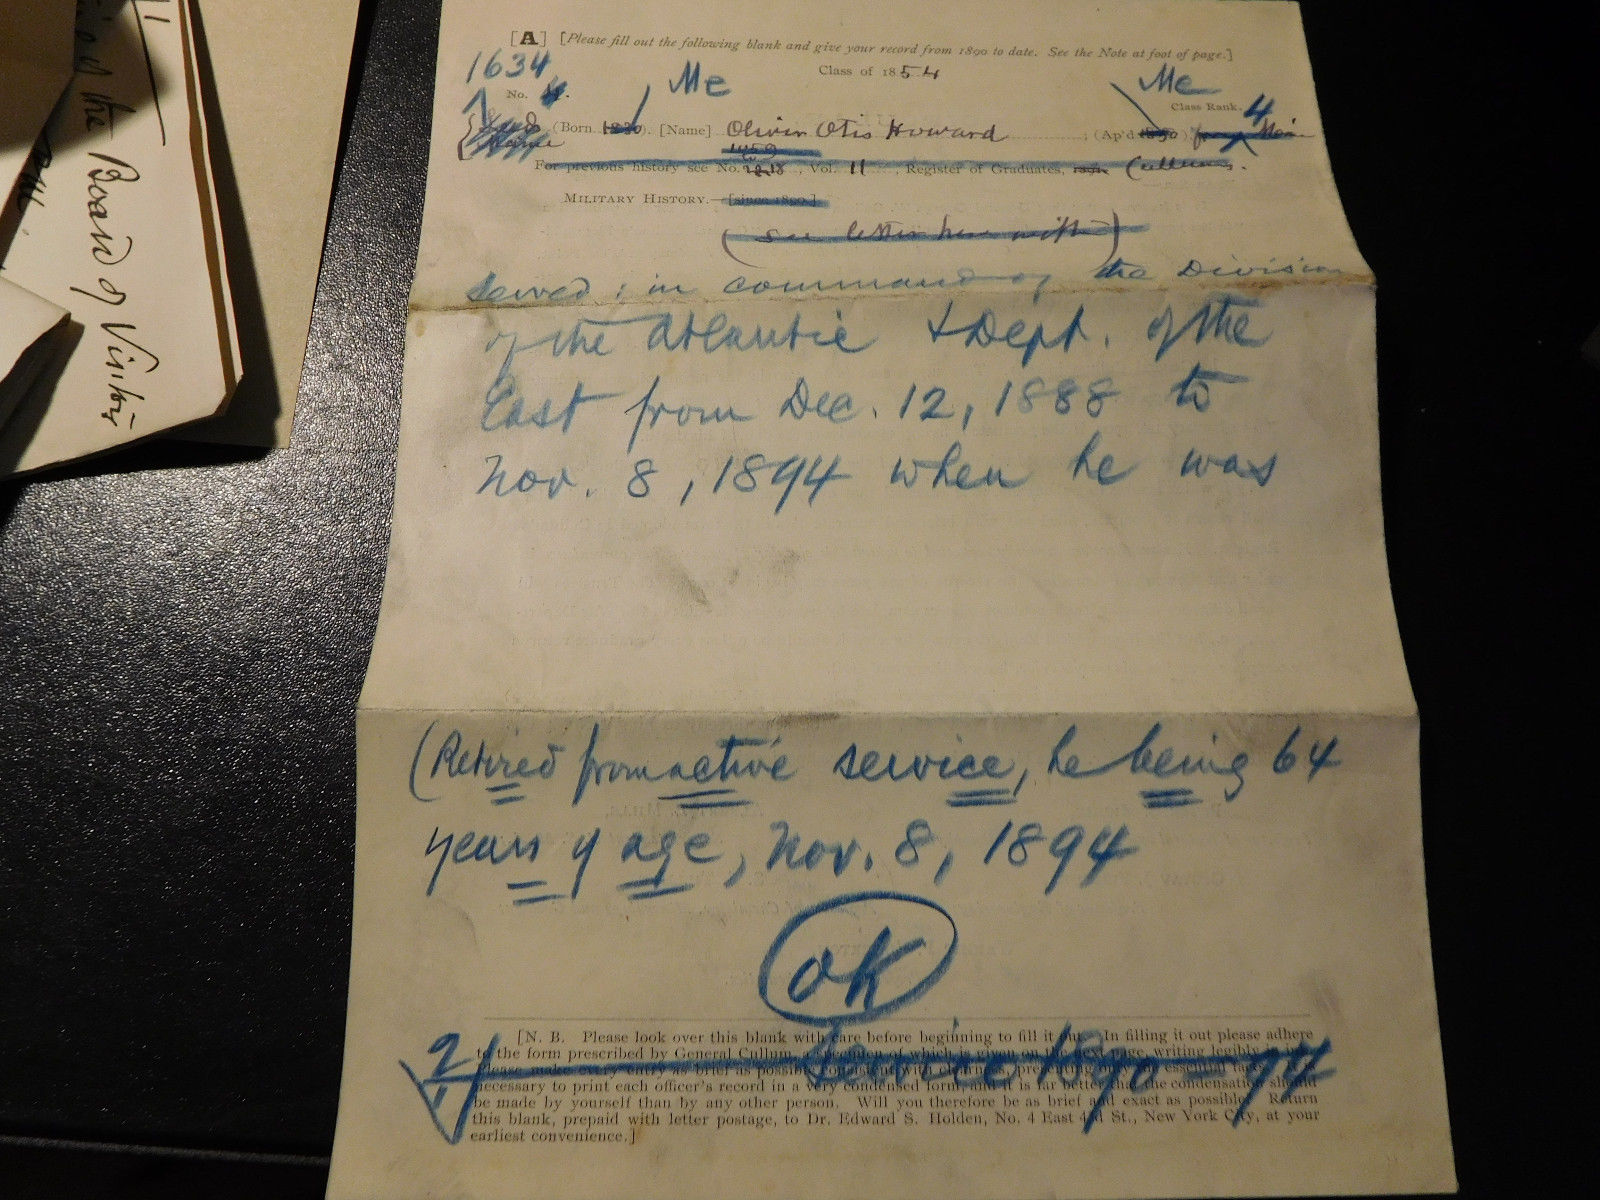 [A] [Please fill out the following blank and give your record from 1890 to date. See the Note at foot of page.]
1634
Class of 1854
Me
Me
No. 4.
Class Rank. 4
(Born 1830). [Name] Oliver Otis Howard ; (Ap'd 1850)
For previous history see No. , Vol. II , Register of Graduates, Cullum's.
MILITARY HISTORY.—[since 1890.]
(see letter here with)
Served: in command of the Division
of the Atlantic & Dept. of the
East from Dec. 12, 1888 to
Nov. 8, 1894 when he was
(Retired from active service, he being 64
years of age, Nov. 8, 1894
OK
[N. B. Please look over this blank with care before beginning to fill it out. In filling it out please adhere
to the form prescribed by General Cullum, a specimen of which is given on the next page, writing legibly
Please make every entry as brief as possible consistent with clearness, presenting only the essential facts
necessary to print each officer's record in a very condensed form, and it is far better that the condensation should
be made by yourself than by any other person. Will you therefore be as brief and exact as possible? Return
this blank, prepaid with letter postage, to Dr. Edward S. Holden, No. 4 East 43d St., New York City, at your
earliest convenience.]
2
Service 1890-94
of the Board of Visitors